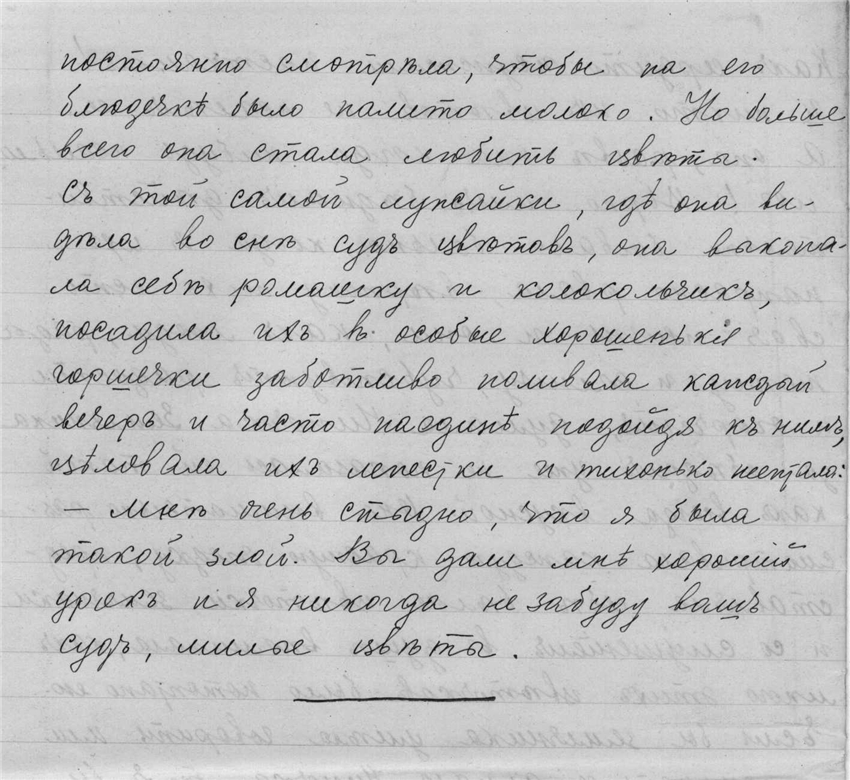 постоянно смотрѣла, чтобы на его
блюдечкѣ было налито молоко. Но больше
всего она стала любить цвѣты.
Съ той самой лужайки, гдѣ она ви-
дѣла во снѣ судъ цвѣтовъ, она выкопа-
ла себѣ ромашку и колокольчикъ,
посадила ихъ въ особые хорошенькія
горшечки заботливо поливала каждый
вечеръ и часто наединѣ подойдя къ нимъ,
цѣловала ихъ лепестки и тихонько шептала:
— Мнѣ очень стыдно, что я была
такой злой. Вы дали мнѣ хорошій
урокъ и я никогда не забуду вашъ
судъ, милые цвѣты.